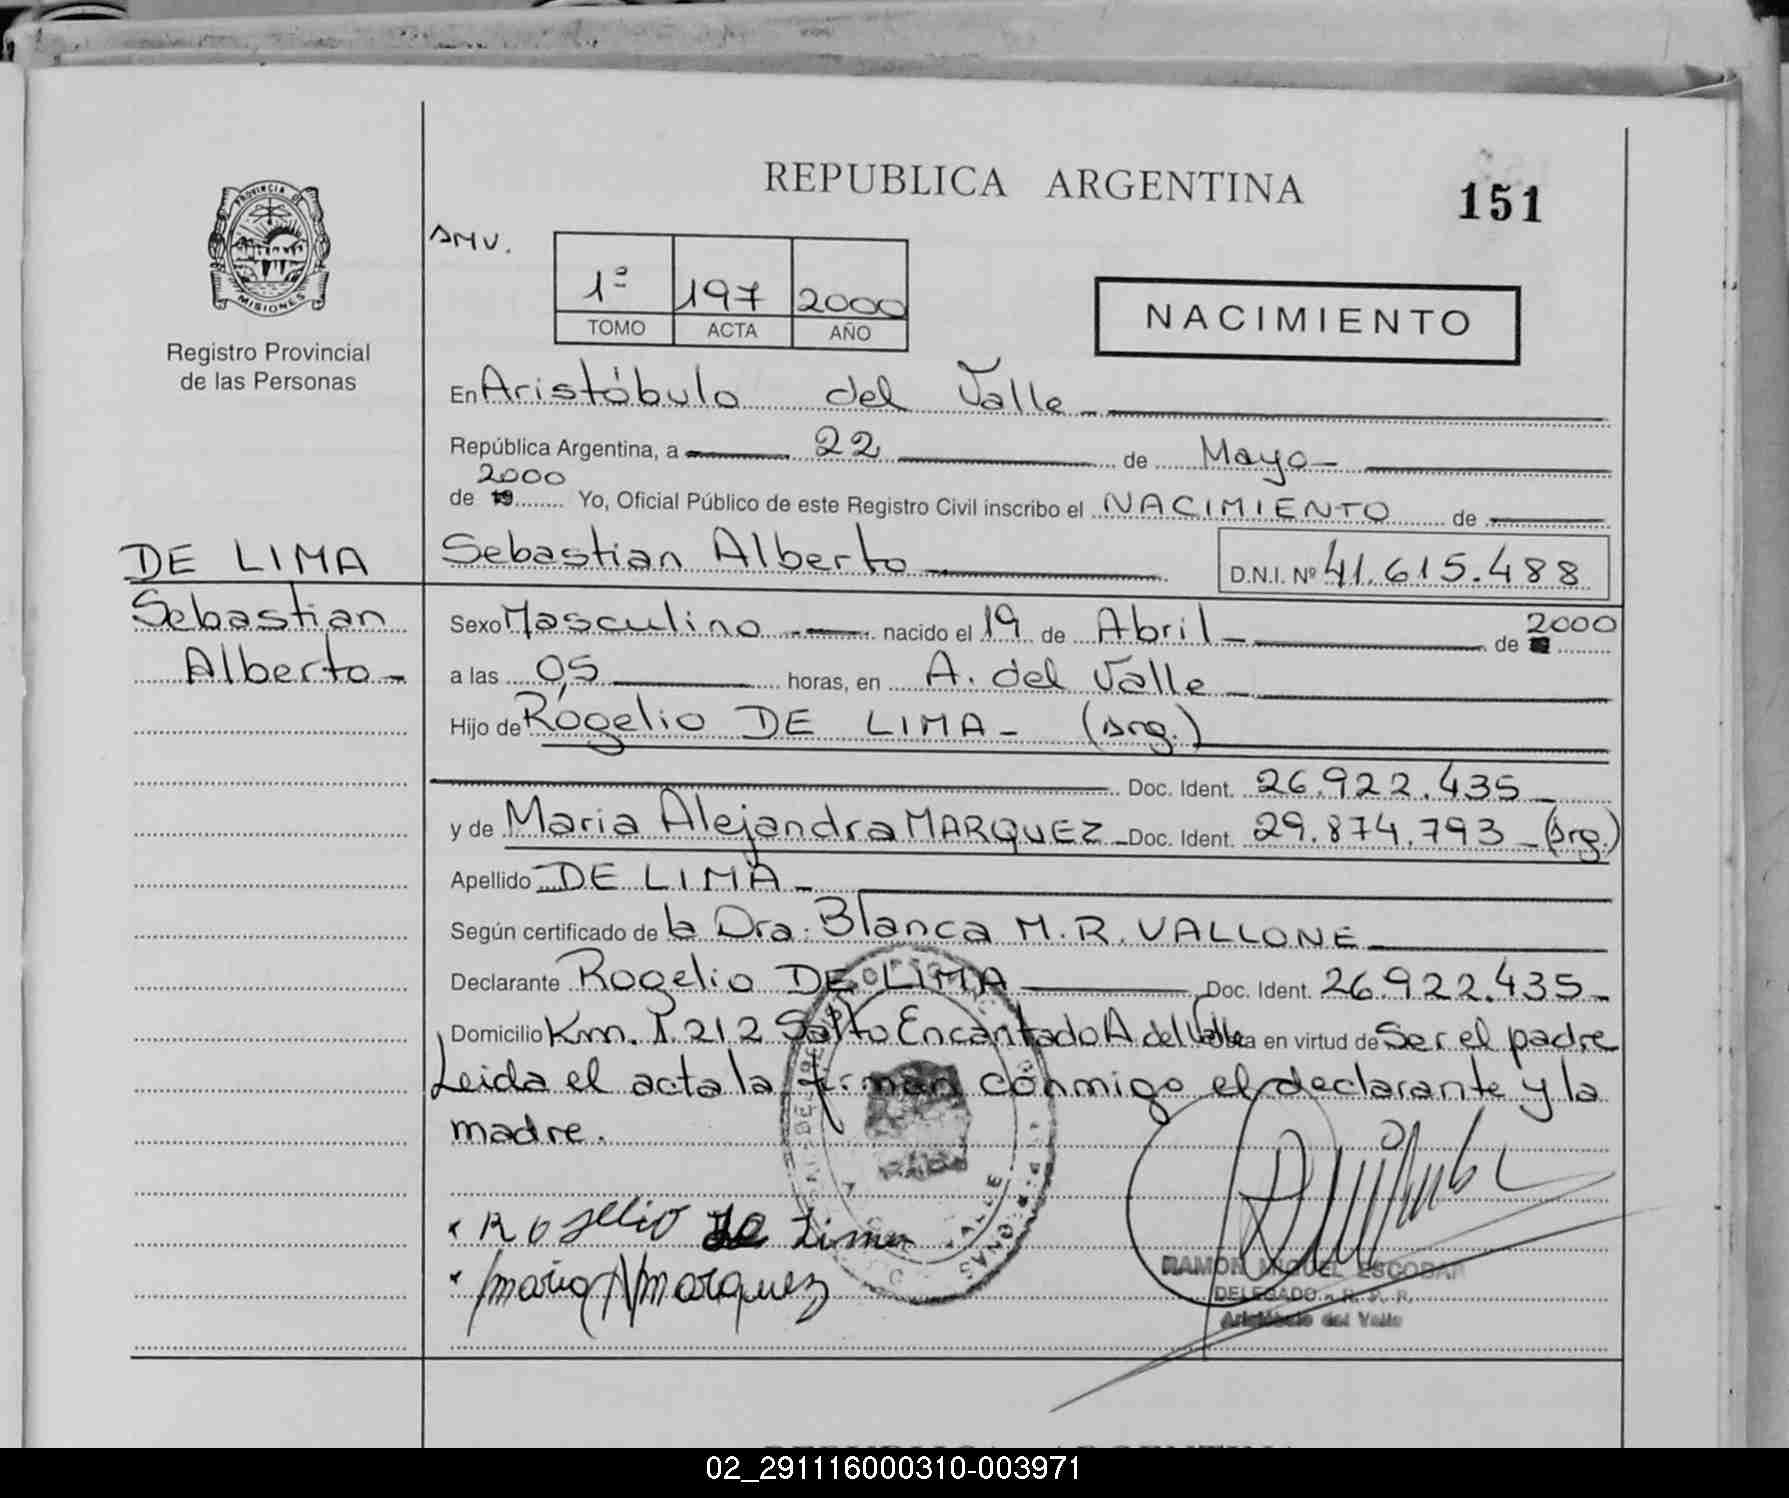 REPUBLICA ARGENTINA
151
PROVINCIA DE
MISIONES
Registro Provincial
de las Personas
AMV.
1º 197 2000
TOMO ACTA AÑO
NACIMIENTO
En Aristóbulo del Valle
República Argentina, a 22 de Mayo
2000
de 19 Yo, Oficial Público de este Registro Civil inscribo el NACIMIENTO de
DE LIMA
Sebastian
Alberto
Sebastian Alberto D.N.I. Nº 41.615.488
Sexo Masculino nacido el 19 de Abril de 2000
a las 05 horas, en A. del Valle
Hijo de Rogelio DE LIMA - (Arg.)
Doc. Ident. 26.922.435
y de Maria Alejandra MARQUEZ Doc. Ident. 29.874.793 - (Arg.)
Apellido DE LIMA
Según certificado de la Dra. Blanca M. R. VALLONE
Declarante Rogelio DE LIMA Doc. Ident. 26.922.435
Domicilio Km. 1.212 Salto Encantado A del Valle en virtud de Ser el padre
Leida el acta la firman conmigo el declarante y la
madre.
Rogelio de Lima
maria A marquez
RAMON MIGUEL ESCOBAR
DELEGADO - R. P. P.
Aristóbulo del Valle
REPUBLICA ARGENTINA
02_291116000310-003971